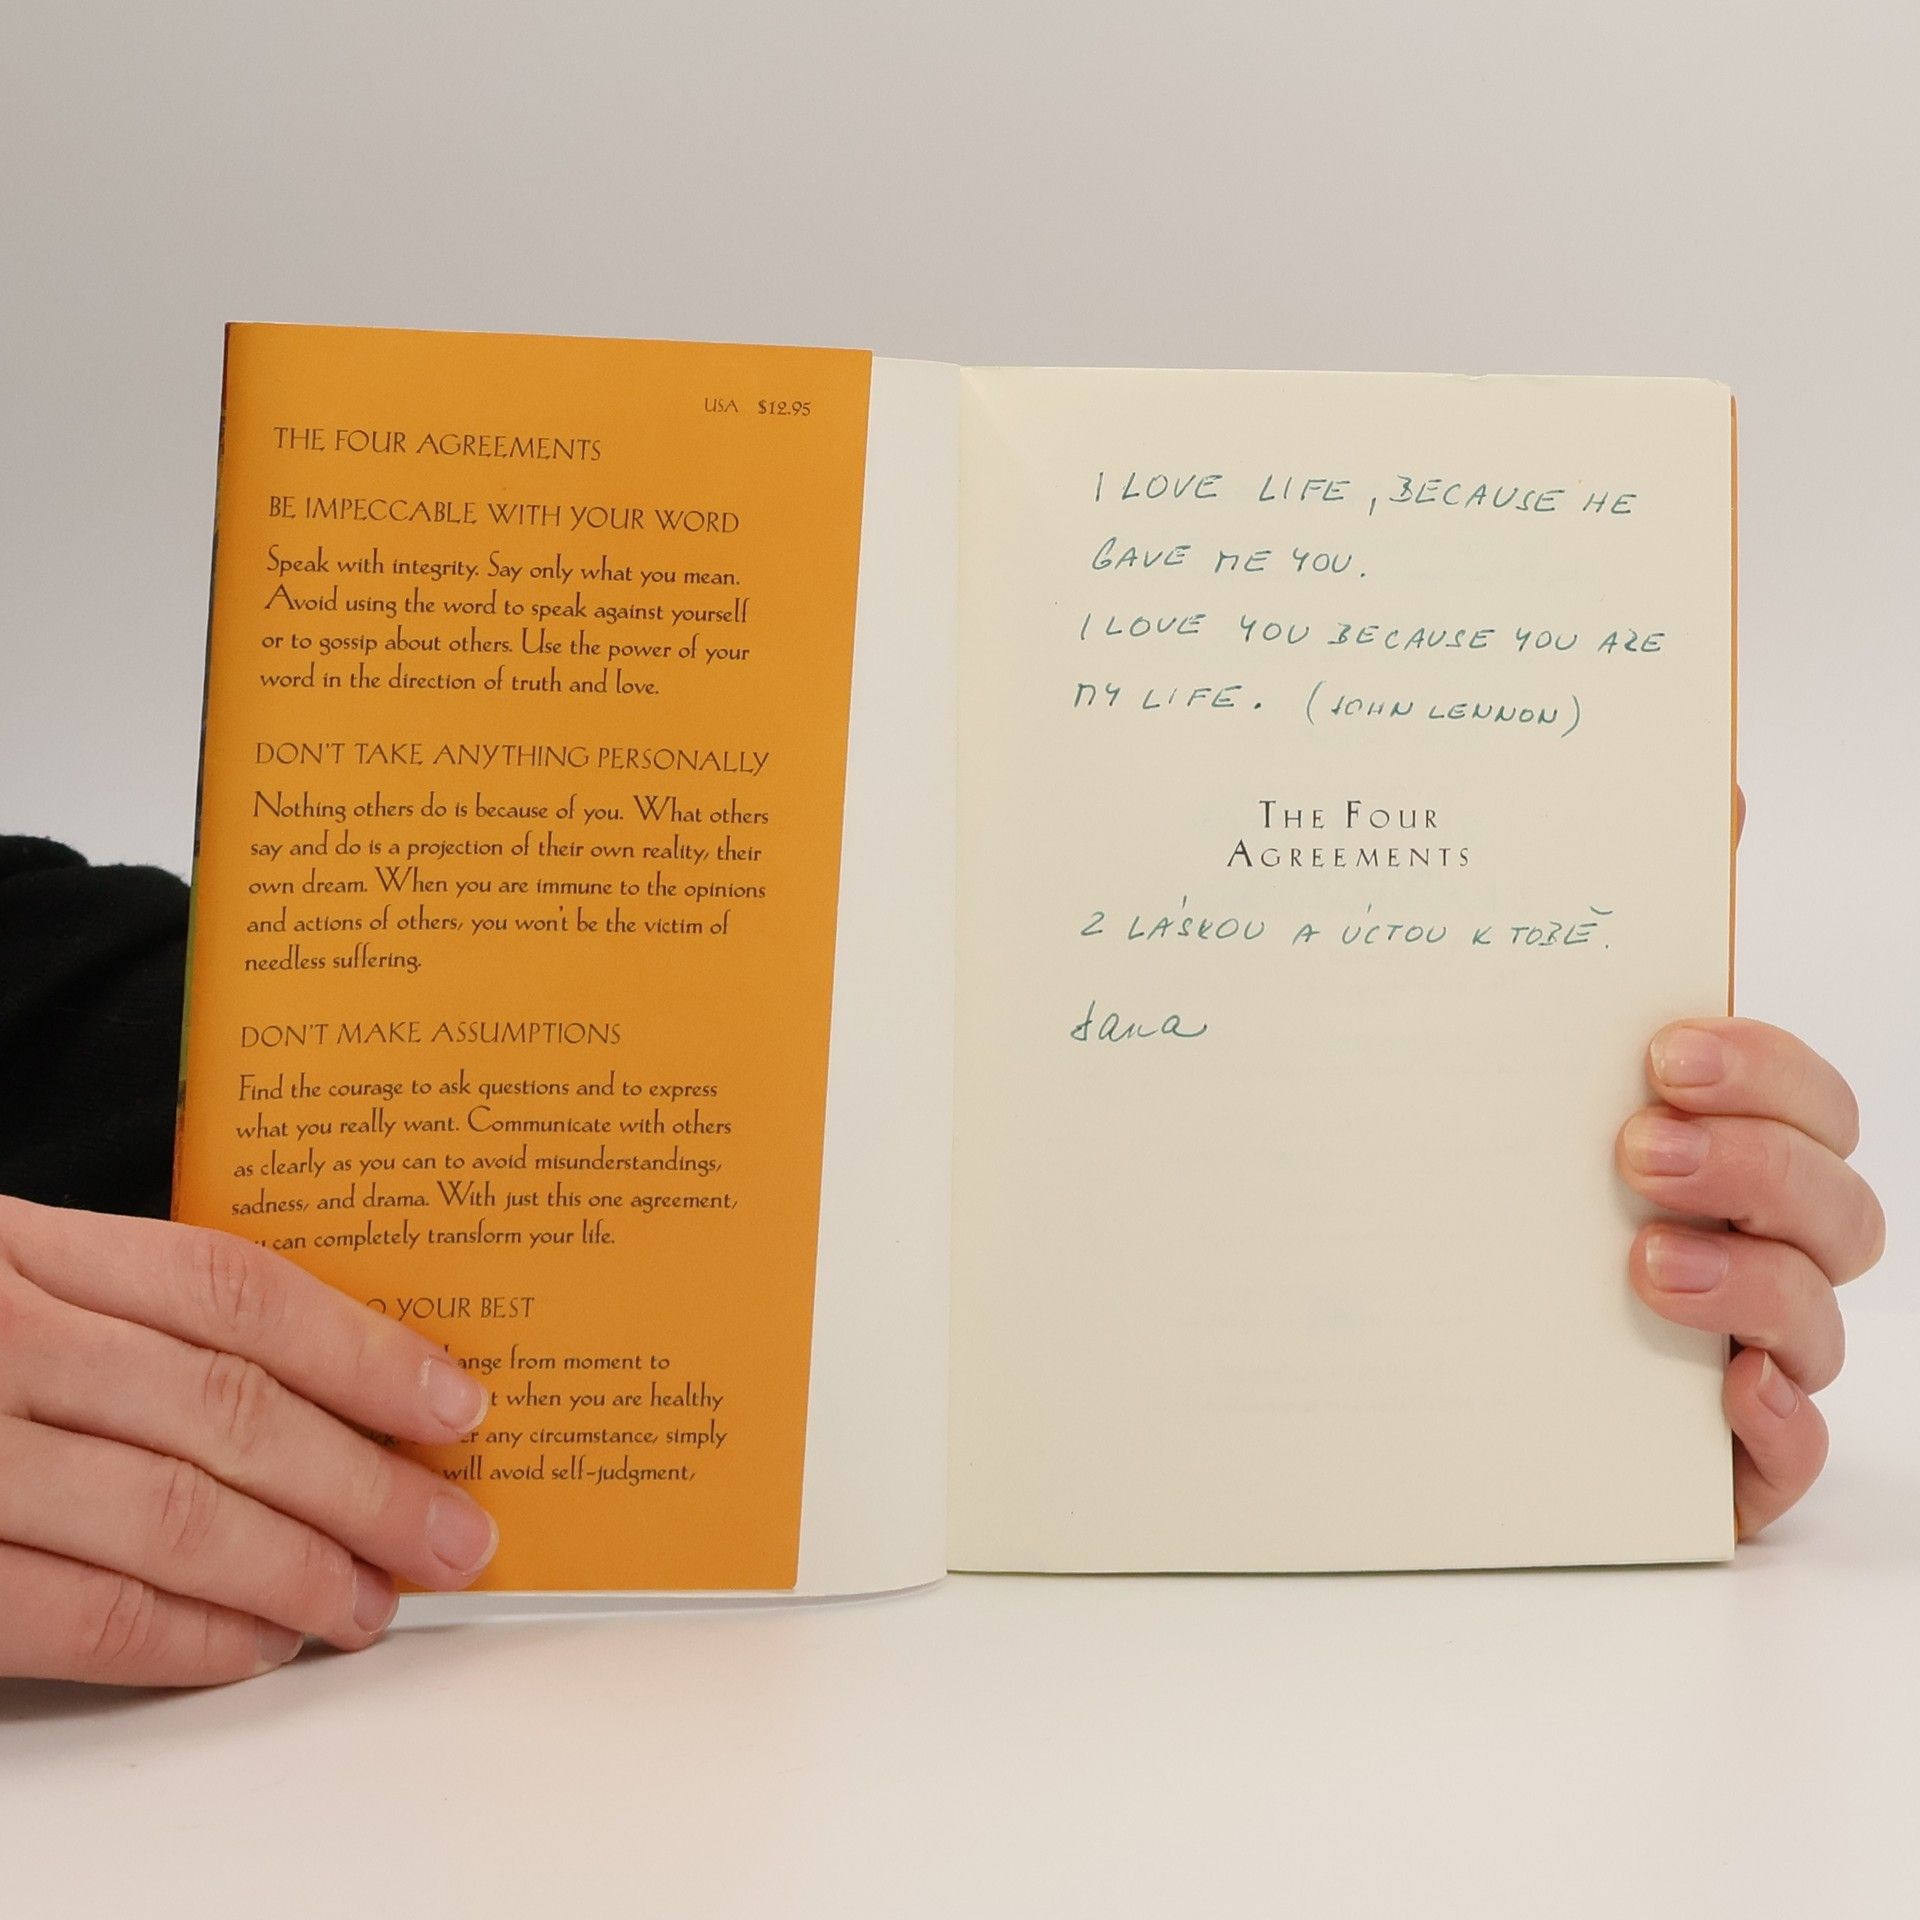 USA $12.95
THE FOUR AGREEMENTS
BE IMPECCABLE WITH YOUR WORD
Speak with integrity. Say only what you mean.
Avoid using the word to speak against yourself
or to gossip about others. Use the power of your
word in the direction of truth and love.
DON'T TAKE ANYTHING PERSONALLY
Nothing others do is because of you. What others
say and do is a projection of their own reality, their
own dream. When you are immune to the opinions
and actions of others, you won't be the victim of
needless suffering.
DON'T MAKE ASSUMPTIONS
Find the courage to ask questions and to express
what you really want. Communicate with others
as clearly as you can to avoid misunderstandings,
sadness, and drama. With just this one agreement,
can completely transform your life.
YOUR BEST
from moment to
when you are healthy
any circumstance, simply
will avoid self-judgment,
I LOVE LIFE, BECAUSE HE
GAVE ME YOU.
I LOVE YOU BECAUSE YOU ARE
MY LIFE. (JOHN LENNON)
THE FOUR
AGREEMENTS
Z LÁSKOU A ÚCTOU K TOBĚ.
Jana